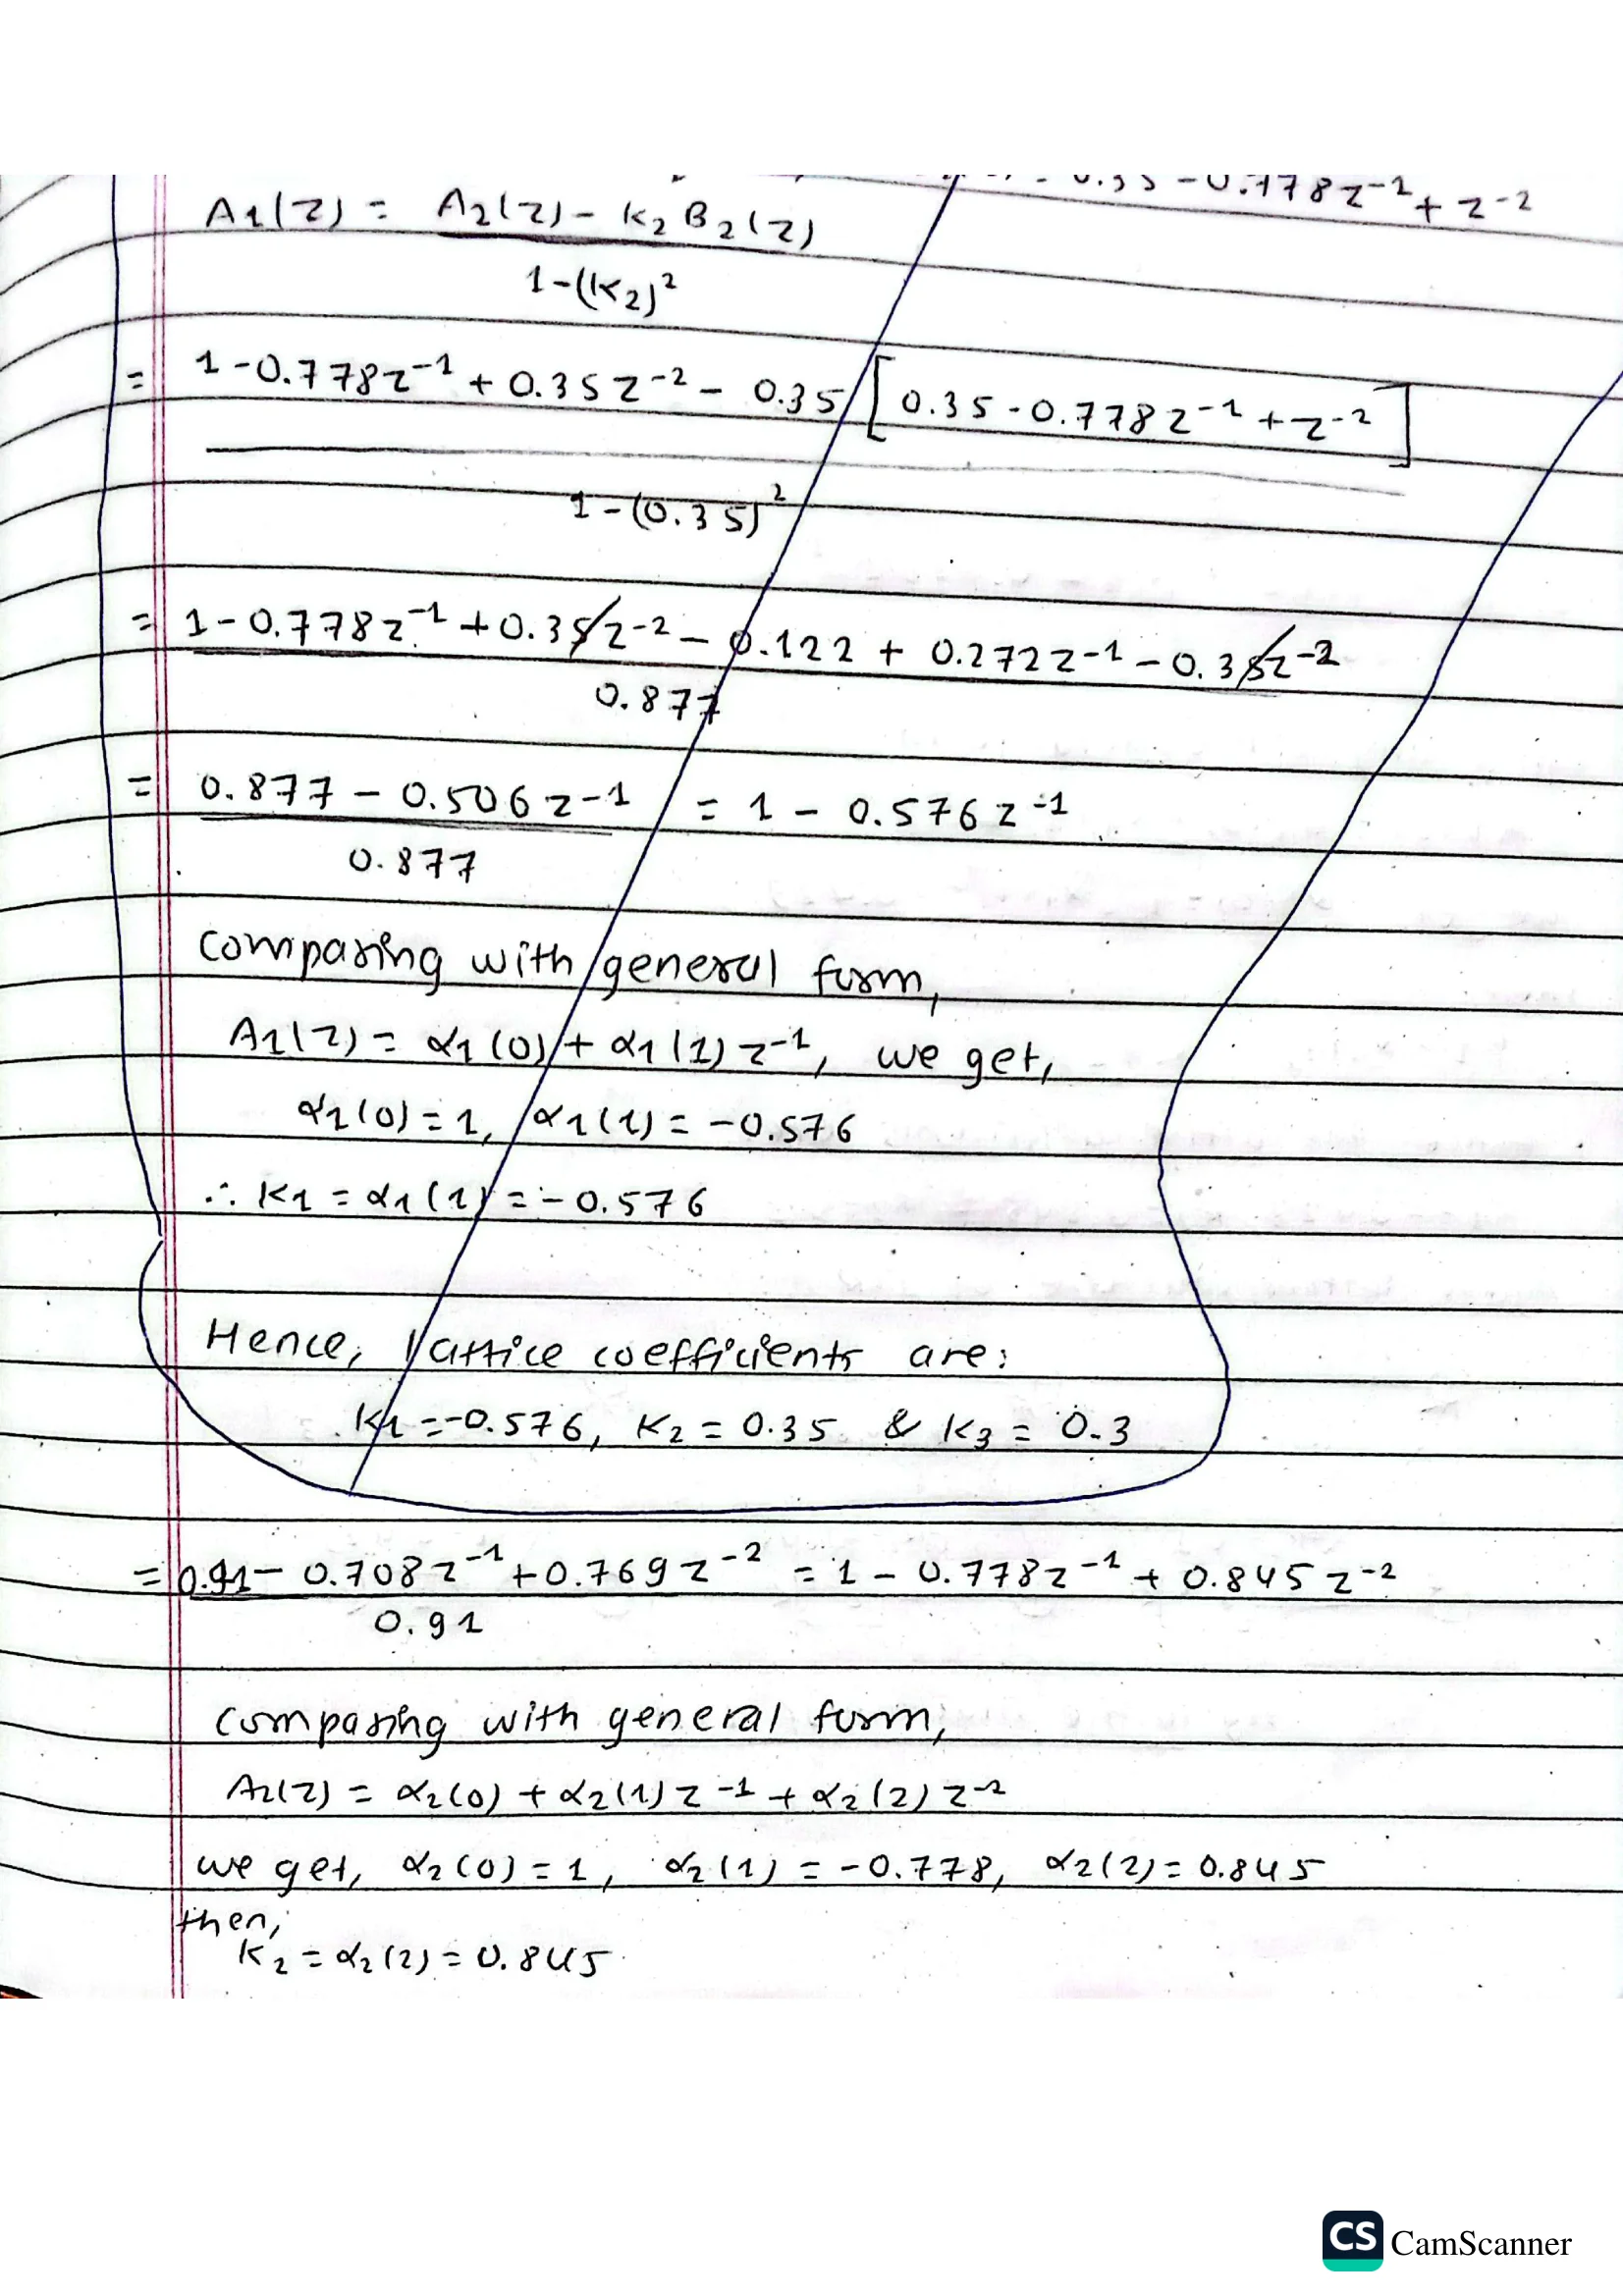 = 0.35 - 0.778z⁻¹ + z⁻²
A₁(z) = A₂(z) - K₂ B₂(z)
1-(K₂)²
= 1 - 0.778z⁻¹ + 0.35z⁻² - 0.35 [0.35 - 0.778z⁻¹ + z⁻²]
1-(0.35)²
= 1 - 0.778z⁻¹ + 0.35z⁻² - 0.122 + 0.272z⁻¹ - 0.35z⁻²
0.877
= 0.877 - 0.506z⁻¹ = 1 - 0.576z⁻¹
0.877
comparing with general form,
A₁(z) = α₁(0) + α₁(1)z⁻¹, we get,
α₁(0) = 1, α₁(1) = -0.576
∴ K₁ = α₁(1) = -0.576
Hence, lattice coefficients are:
K₁ = -0.576, K₂ = 0.35 & K₃ = 0.3
= 0.91 - 0.708z⁻¹ + 0.769z⁻² = 1 - 0.778z⁻¹ + 0.845z⁻²
0.91
comparing with general form,
A₂(z) = α₂(0) + α₂(1)z⁻¹ + α₂(2)z⁻²
we get, α₂(0) = 1, α₂(1) = -0.778, α₂(2) = 0.845
then,
K₂ = α₂(2) = 0.845
CS CamScanner